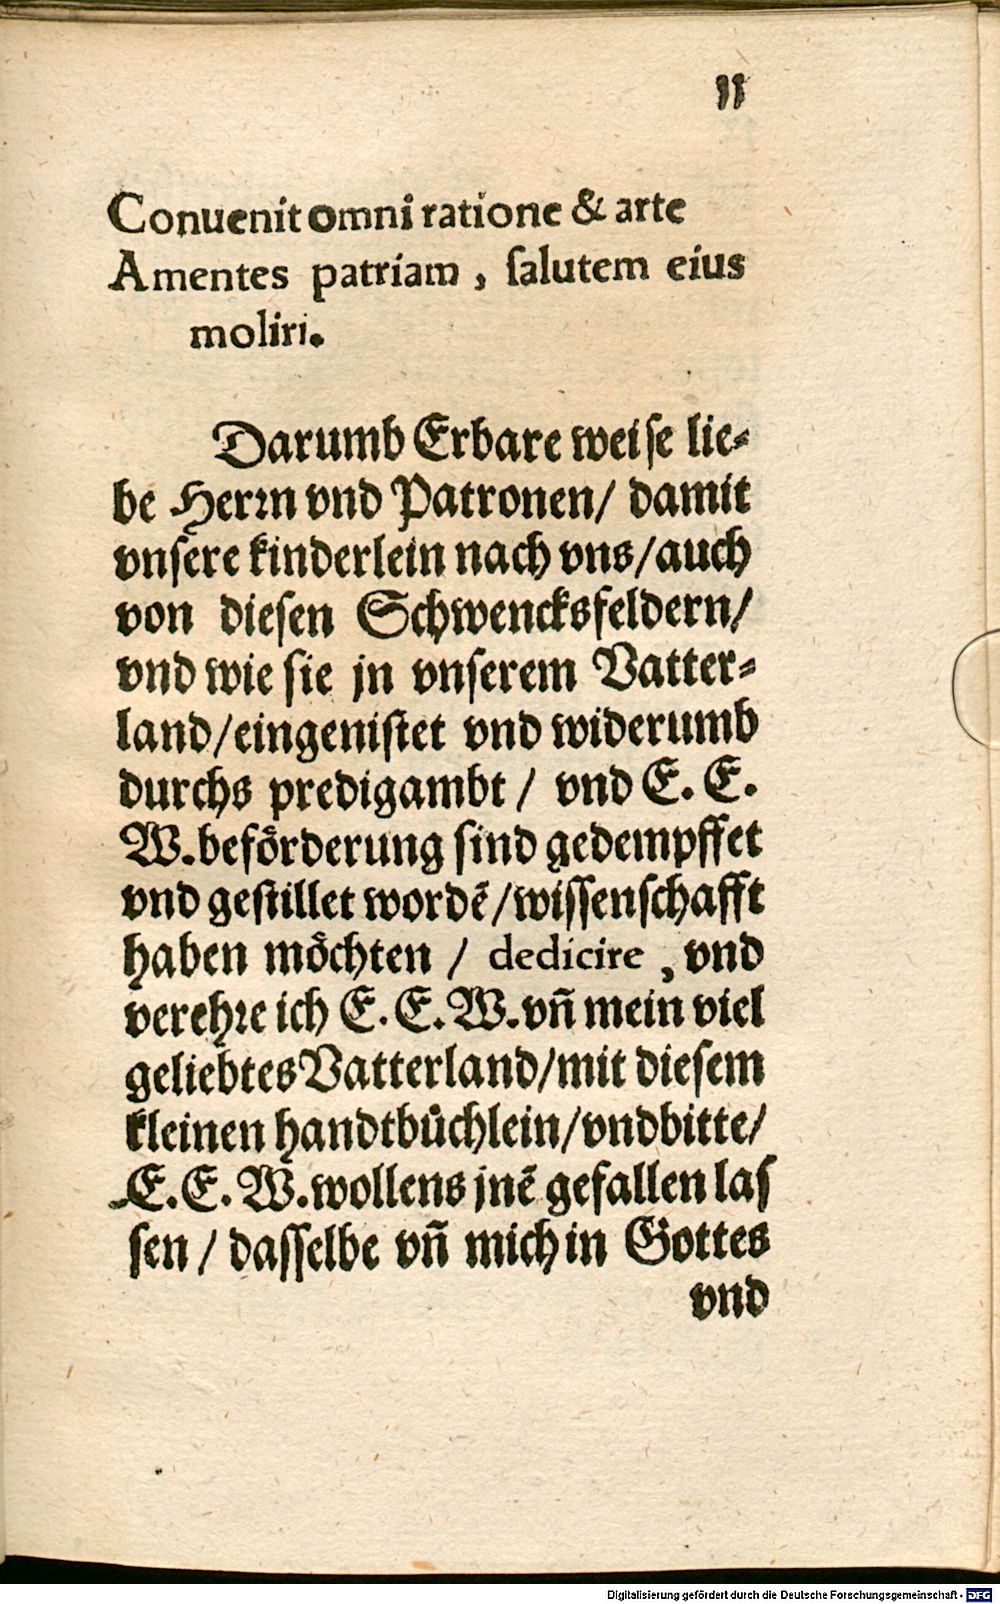 11
Conuenit omni ratione & arte
Amentes patriam, ſalutem eius
moliri.
Darumb Erbare weiſe lie-
be Herꝛn vnd Patronen/ damit
vnſere kinderlein nach vns/auch
von dieſen Schwencksfeldern/
vnd wie ſie jn vnſerem Vatter-
land/eingeniſtet vnd widerumb
durchs predigambt / vnd E. E.
W. befoͤrderung ſind gedempffet
vnd geſtillet wordē/wiſſenſchafft
haben moͤchten / dedicire, vnd
verehꝛe ich E. E. W. vn̄ mein viel
geliebtes Vatterland/mit dieſem
kleinen handtbuͤchlein/vndbitte/
E. E. W. wollens jnē gefallen laſ
ſen / daſſelbe vn̄ mich in Gottes
vnd
Digitalisierung gefördert durch die Deutsche Forschungsgemeinschaft - DFG